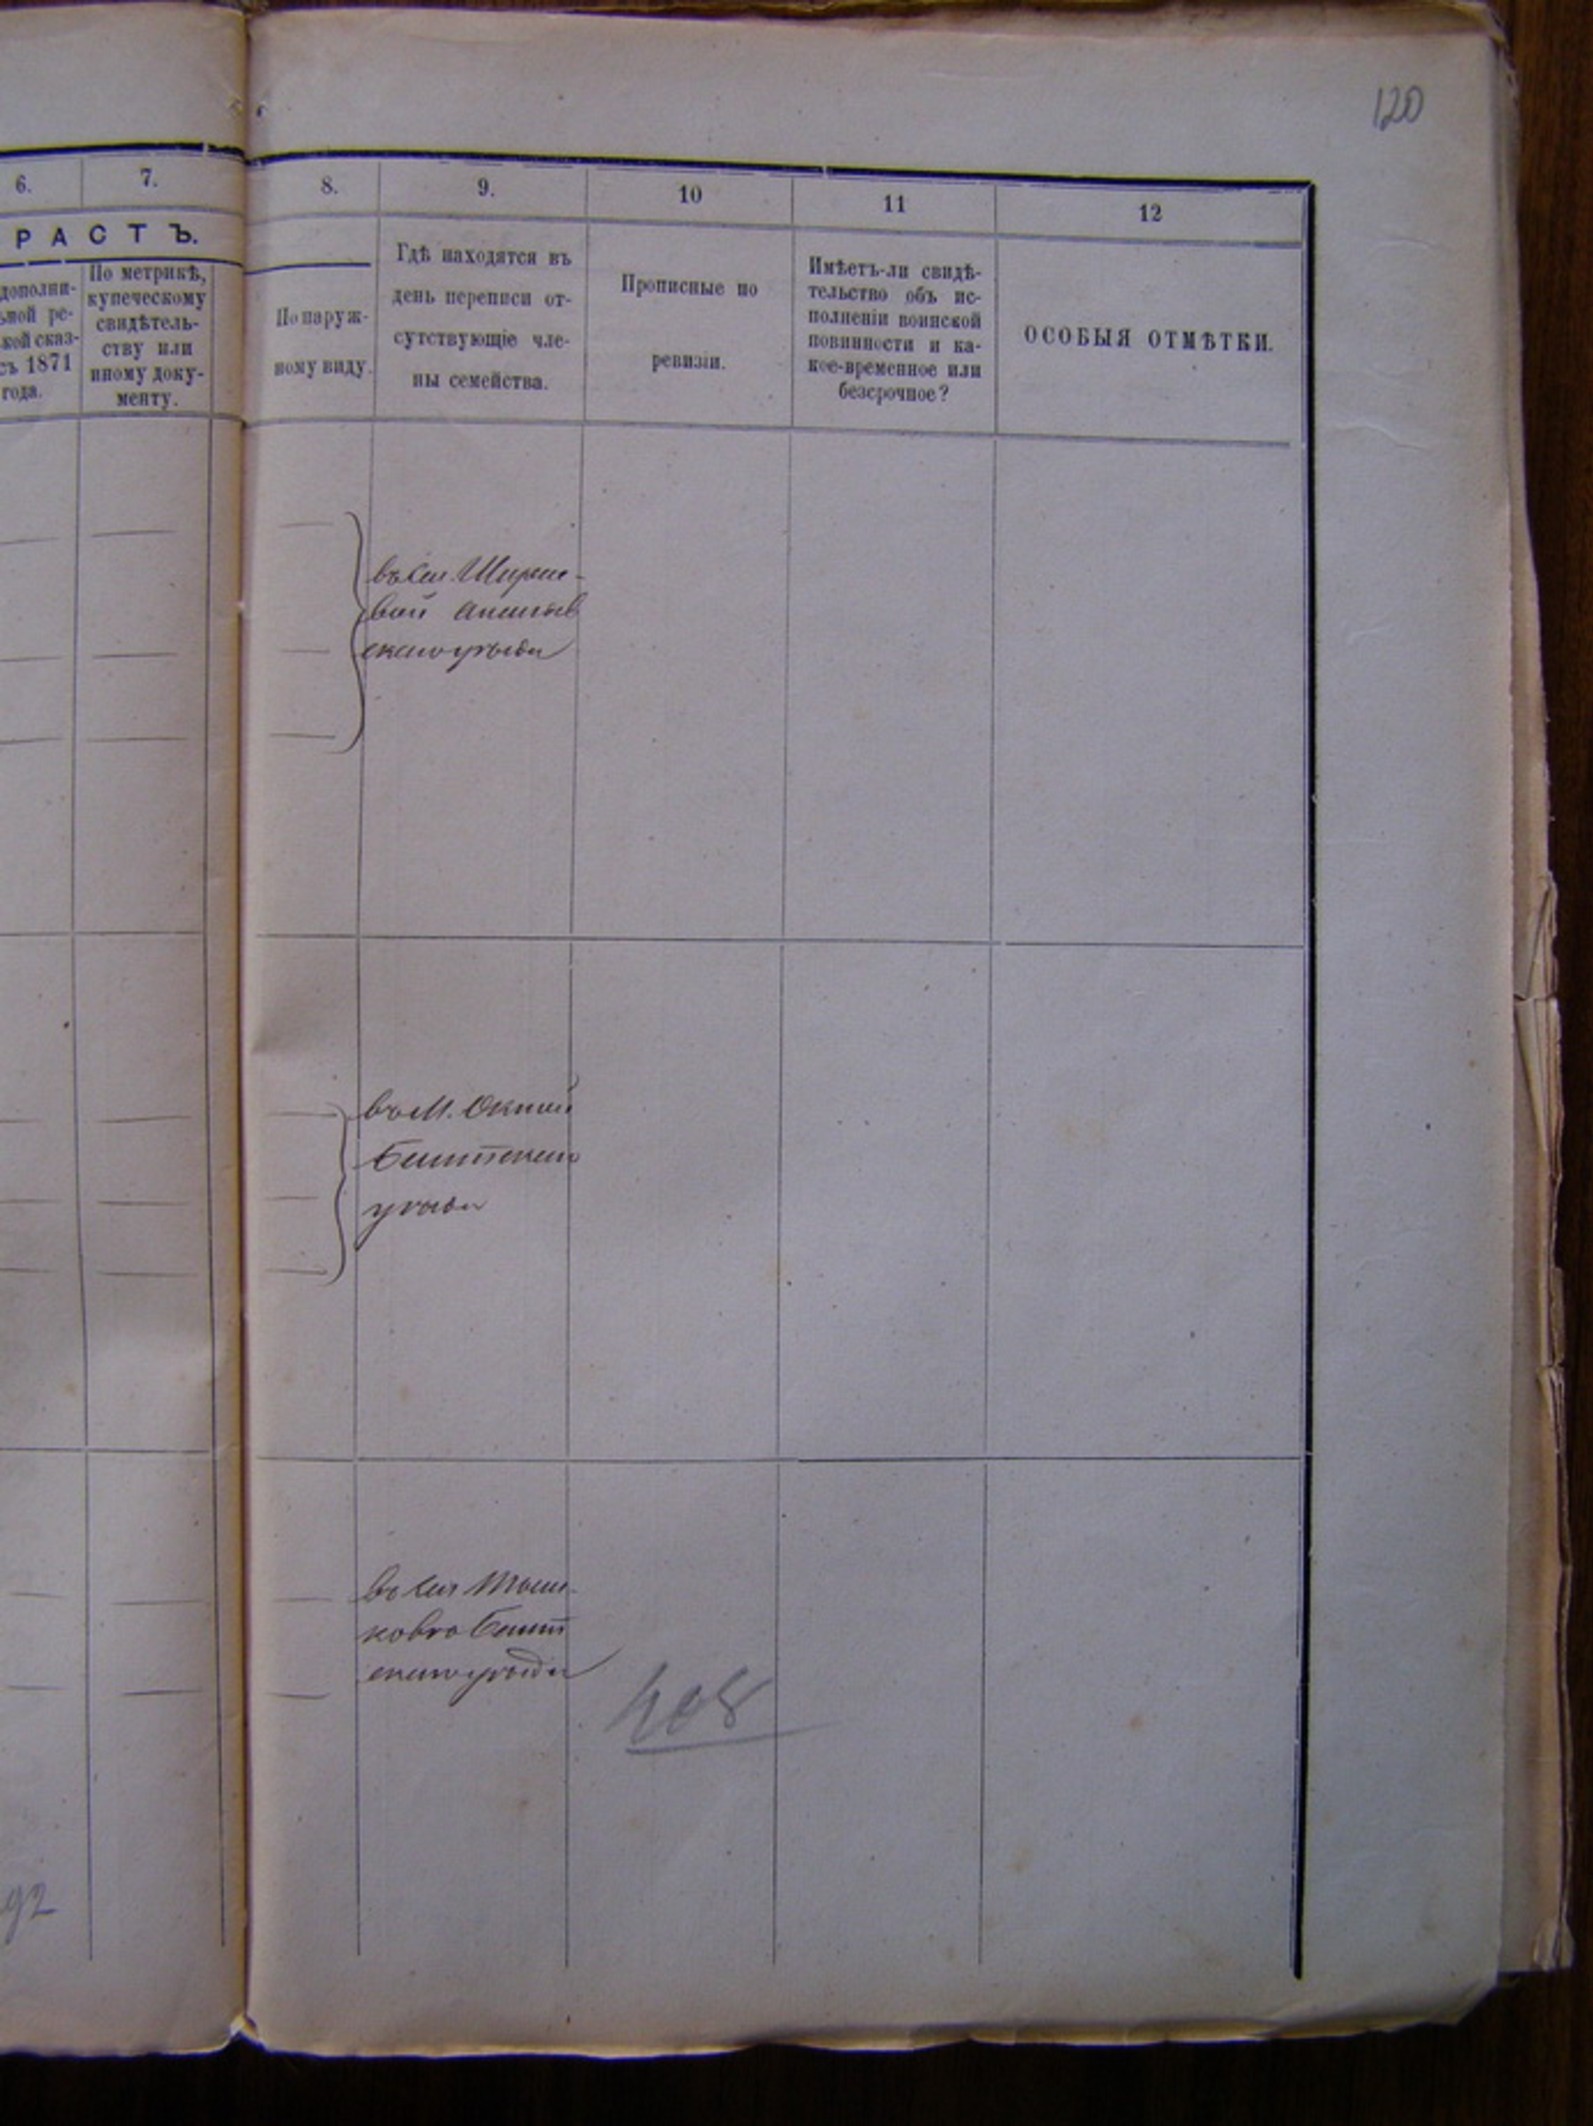 120
6.
7.
8.
9.
10
11
12
РАСТЪ.
дополни-
ьной ре-
кой сказ-
съ 1871
года.
По метрикѣ,
купеческому
свидѣтель-
ству или
иному доку-
менту.
По наруж-
ному виду.
Гдѣ находятся въ
день переписи от-
сутствующіе чле-
ны семейства.
Прописные по
ревизіи.
Имѣетъ-ли свидѣ-
тельство объ ис-
полненіи воинской
повинности и ка-
кое-временное или
безсрочное?
ОСОБЫЯ ОТМѢТКИ.
въ сел. Ширяе-
вой Ананьев
скаго уѣзда
въ М. Окнай
Балтскаго
уѣзда
въ сел
ково Балт
скаго уѣзда
408
92